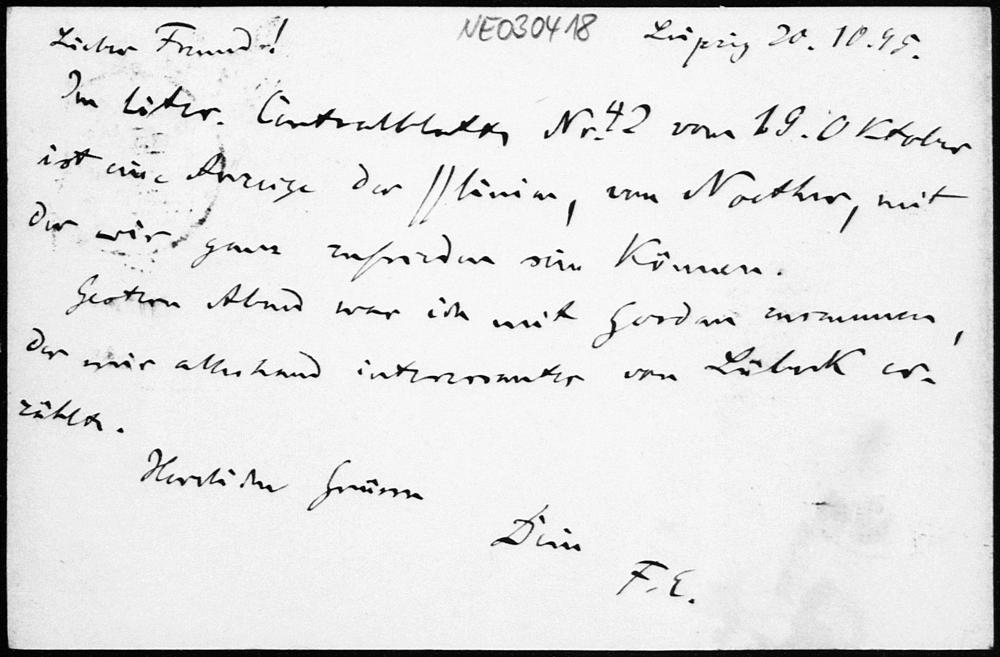 NE030418
Lieber Freund! Leipzig 20.10.95.
Im liter. Centralblatte Nr. 42 vom 19. Oktober
ist eine Anzeige der ||linien, von Noether, mit
der wir ganz zufrieden sein können.
Gestern Abend war ich mit Gordan zusammen,
der mir allerhand interessantes von Lübeck er-
zählte.
Herzliche Grüsse
Dein
F. E.